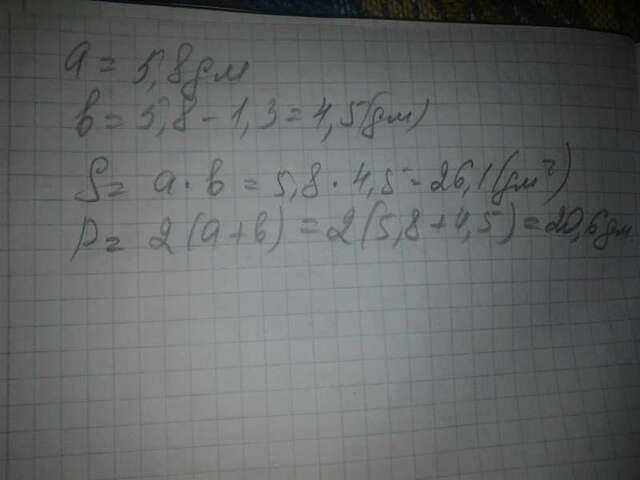 a = 5,8 дм
в = 5,8 - 1,3 = 4,5 (дм)
S = a · в = 5,8 · 4,5 = 26,1 (дм²)
P = 2 (a + в) = 2 (5,8 + 4,5) = 20,6 дм